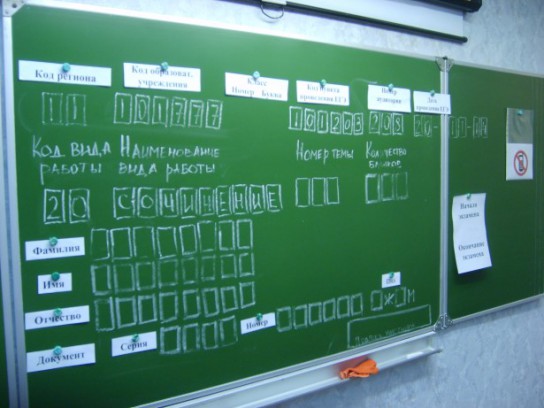 Код региона
Код образоват. учреждения
Класс Номер Буква
Код пункта проведения ЕГЭ
Номер аудитории
Дата проведения ЕГЭ
11 101777 101203 203 20-11-02
Код вида работы
Наименование вида работы
Номер темы
Количество бланков
20 СОЧИНЕНИЕ
Начало экзамена
Окончание экзамена
Фамилия
Имя
Отчество
Документ
Серия
Номер
Ж М